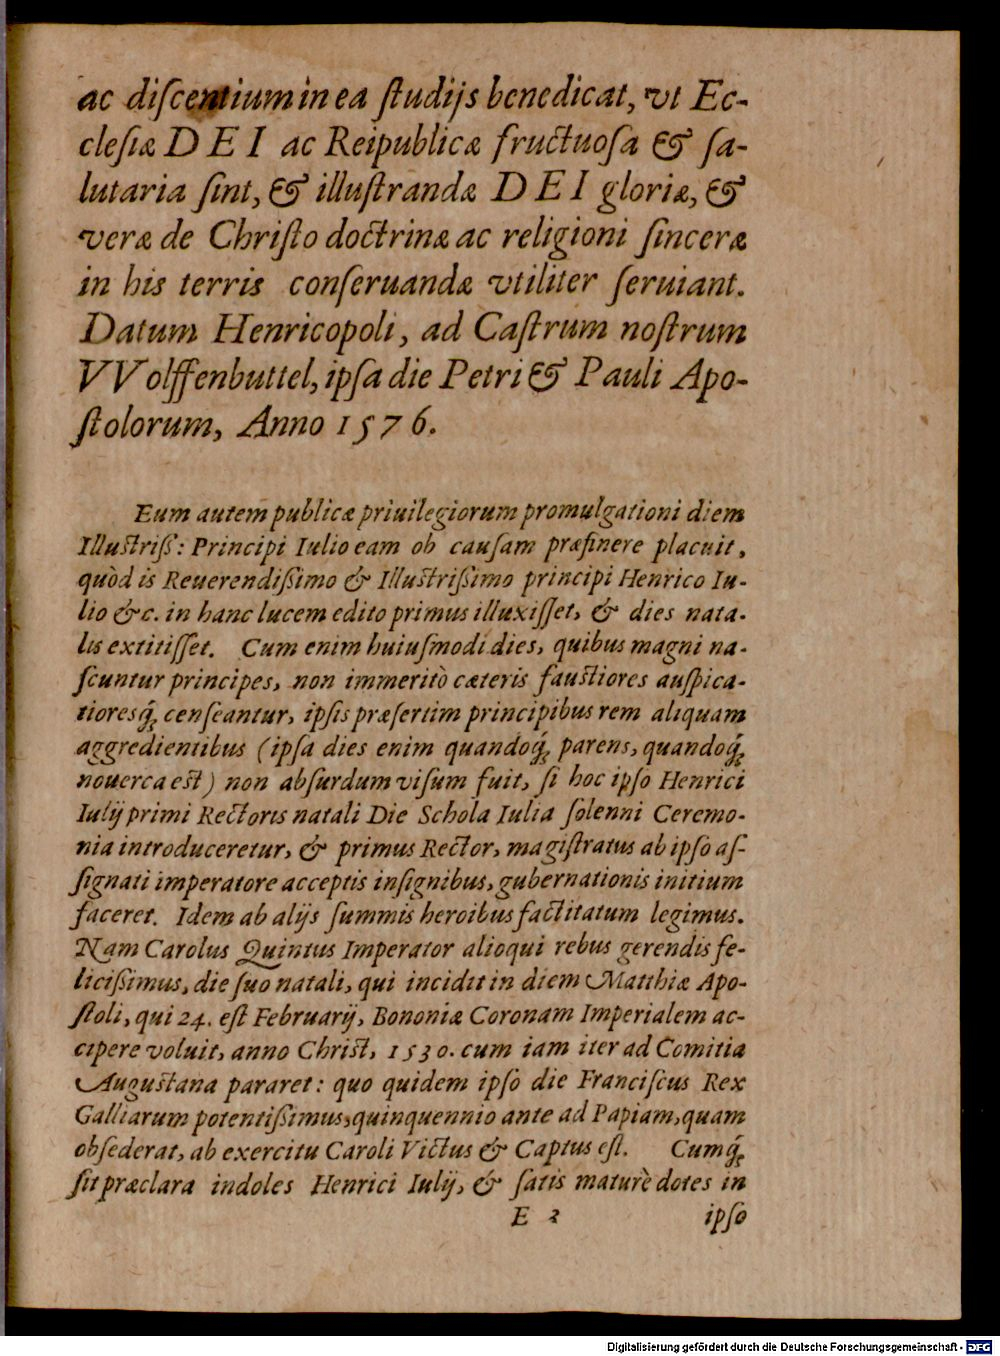 ac diſcentium in ea ſtudijs benedicat, vt Ec-
cleſiæ DEI ac Reipublicæ fructuoſa & ſa-
lutaria ſint, & illuſtrandæ DEI gloriæ, &
veræ de Chriſto doctrinæ ac religioni ſinceræ
in his terris conſeruandæ vtiliter ſeruiant.
Datum Henricopoli, ad Caſtrum noſtrum
VVolffenbuttel, ipſa die Petri & Pauli Apo-
ſtolorum, Anno 1576.
Eum autem publicæ priuilegiorum promulgationi diem
Illuſtriſſ: Principi Iulio eam ob cauſam præfinere placuit,
quòd is Reuerendiſſimo & Illuſtriſſimo principi Henrico Iu-
lio &c. in hanc lucem edito primus illuxiſſet, & dies nata-
lis extitiſſet. Cum enim huiuſmodi dies, quibus magni na-
ſcuntur principes, non immeritò cæteris fauſtiores auſpica-
tioresq́; cenſeantur, ipſis præſertim principibus rem aliquam
aggredientibus (ipſa dies enim quandoq́; parens, quandoq́;
nouerca est) non abſurdum viſum fuit, ſi hoc ipſo Henrici
Iulij primi Rectoris natali Die Schola Iulia ſolenni Ceremo-
nia introduceretur, & primus Rector, magiſtratus ab ipſo aſ-
ſignati imperatore acceptis inſignibus, gubernationis initium
faceret. Idem ab alijs ſummis heroibus factitatum legimus.
Nam Carolus Quintus Imperator alioqui rebus gerendis fe-
liciſſimus, die ſuo natali, qui incidit in diem Matthiæ Apo-
ſtoli, qui 24. eſt Februarij, Bononiæ Coronam Imperialem ac-
cipere voluit, anno Christ, 1530. cum iam iter ad Comitia
Auguſtana pararet: quo quidem ipſo die Franciſcus Rex
Galliarum potentiſſimus, quinquennio ante ad Papiam, quam
obſederat, ab exercitu Caroli Victus & Captus eſt. Cumq́;
ſit præclara indoles Henrici Iulij, & ſatis maturè dotes in
E 2 ipſo
Digitalisierung gefördert durch die Deutsche Forschungsgemeinschaft - DFG